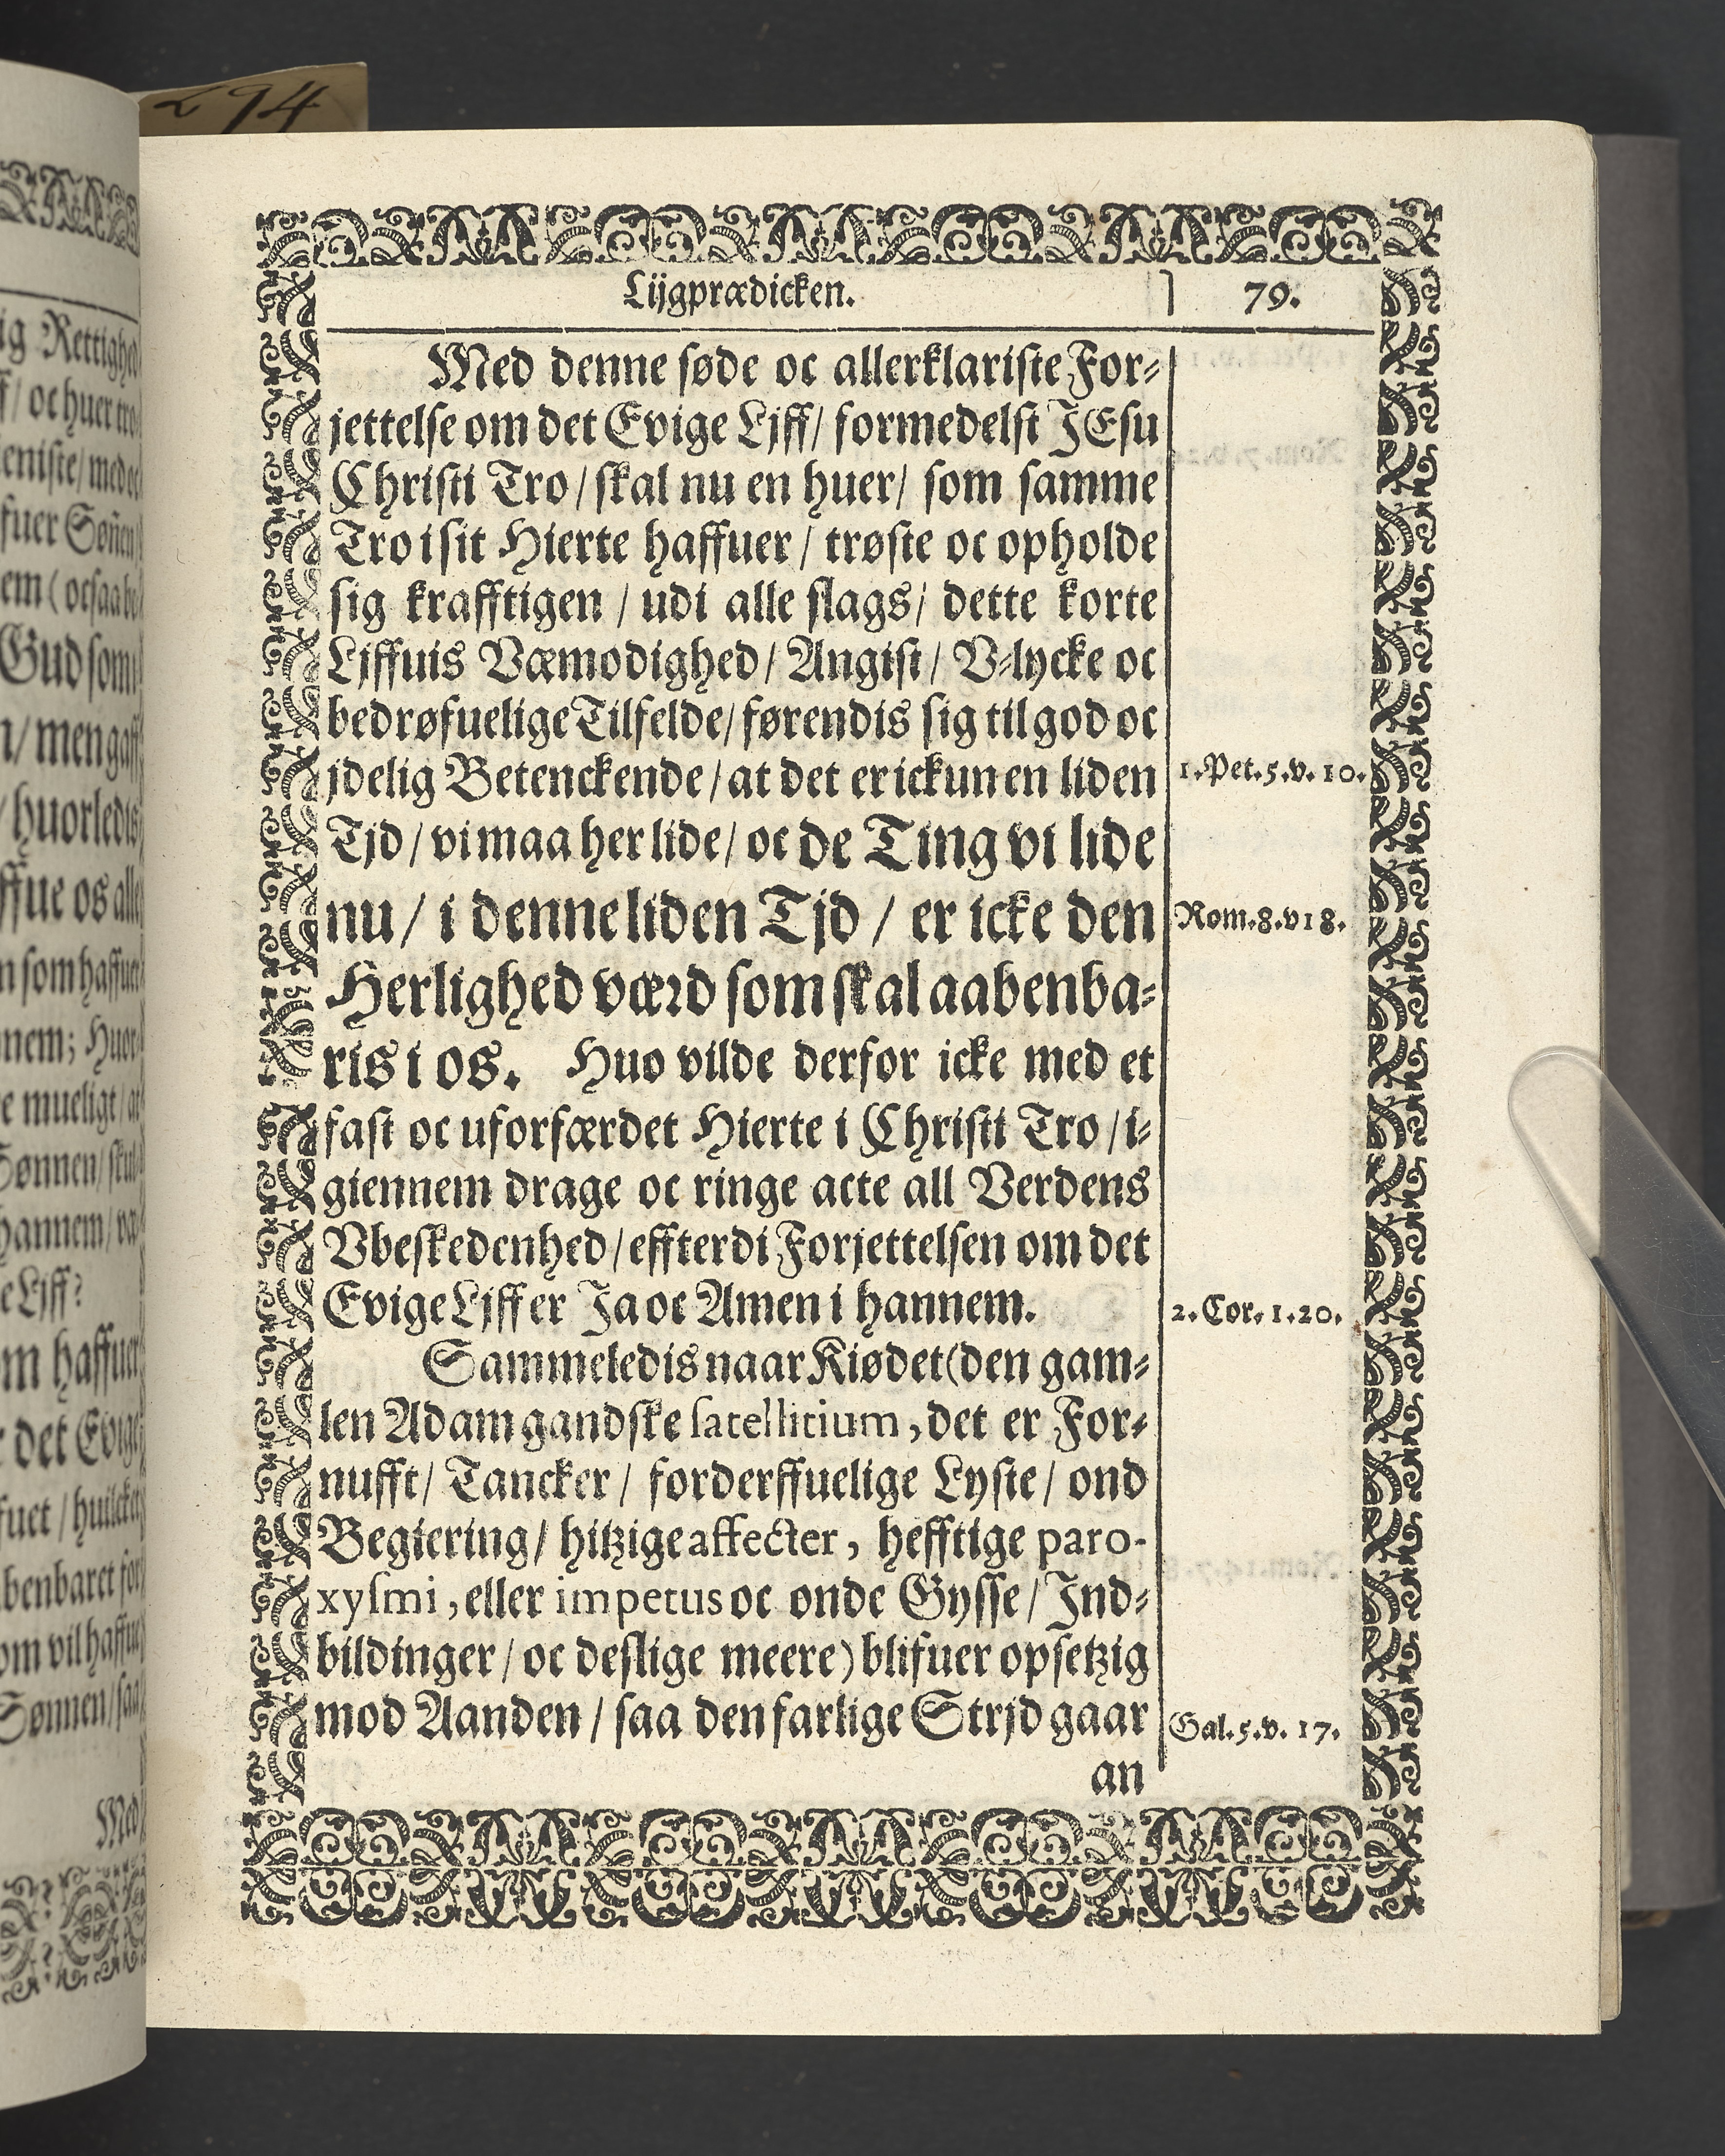 294
Lijgprædicken.
79.
Med denne søde oc allerklariste For⸗
jettelse om det Evige Ljff/ formedelst JEsu
Christi Tro / skal nu en huer/ som samme
Tro i sit Hierte haffuer / trøste oc opholde
sig krafftigen / udi alle slags/ dette korte
Ljffuis Væmodighed/ Angist/ V⸗lycke oc
bedrøfuelige Tilfelde/ førendis sig til god oc
jdelig Betenckende/ at det er ickun en liden
1. Pet. 5. v. 10.
Tjd / vi maa her lide/ oc de Ting vi lide
nu / i denne liden Tjd / er icke den
Rom. 8. v 18.
Herlighed værd som skal aabenba⸗
ris i os. Huo vilde derfor icke med et
fast oc uforfærdet Hierte i Christi Tro / i⸗
giennem drage oc ringe acte all Verdens
Vbeskedenhed/ effterdi Forjettelsen om det
Evige Ljff er Ja oc Amen i hannem.
2. Cor. 1. 20.
Sammeledis naar Kiødet (den gam⸗
len Adam gandske satellitium, det er For⸗
nufft/ Tancker / forderffuelige Lyste/ ond
Begiering/ hitzige affecter, hefftige paro-
xysmi, eller impetus oc onde Gysse/ Ind⸗
bildinger / oc deslige meere) blifuer opsetzig
mod Aanden / saa den farlige Strjd gaar
Gal. 5. v. 17.
an